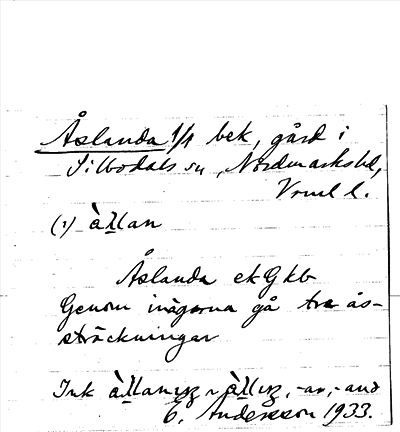 Åslanda 1/1 bek, gård i
Silbodals sn, Nordmarks hd,
Vrml l.
(1) àl̲l̲an
Åslanda ekGkb
Genom inägorna gå tre ås-
sträckningar
Ink
E. Andersson 1933.